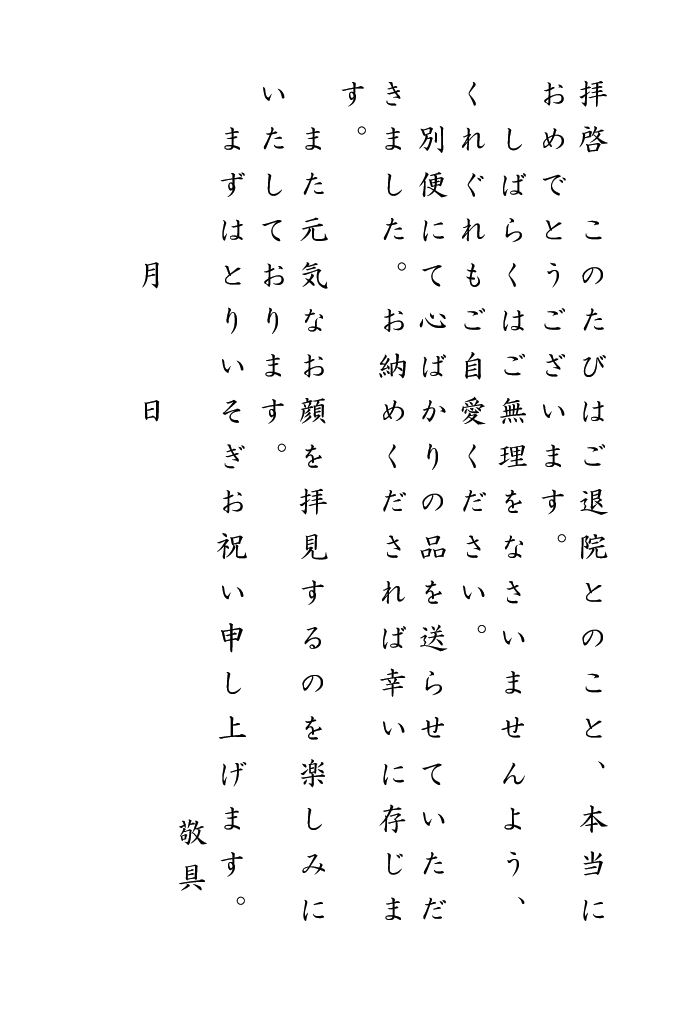 拝啓　このたびはご退院とのこと、本当に
おめでとうございます。
　しばらくはご無理をなさいませんよう、
くれぐれもご自愛ください。
　別便にて心ばかりの品を送らせていただ
きました。お納めくだされば幸いに存じま
す。
　また元気なお顔を拝見するのを楽しみに
いたしております。
　まずはとりいそぎお祝い申し上げます。
敬具
月　　日